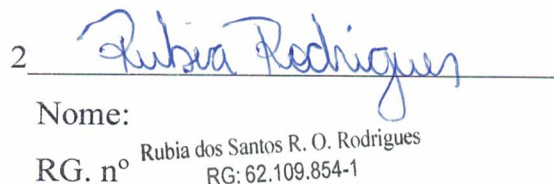 2 Rubia Rodrigues
Nome:
RG. nº Rubia dos Santos R. O. Rodrigues
RG: 62.109.854-1